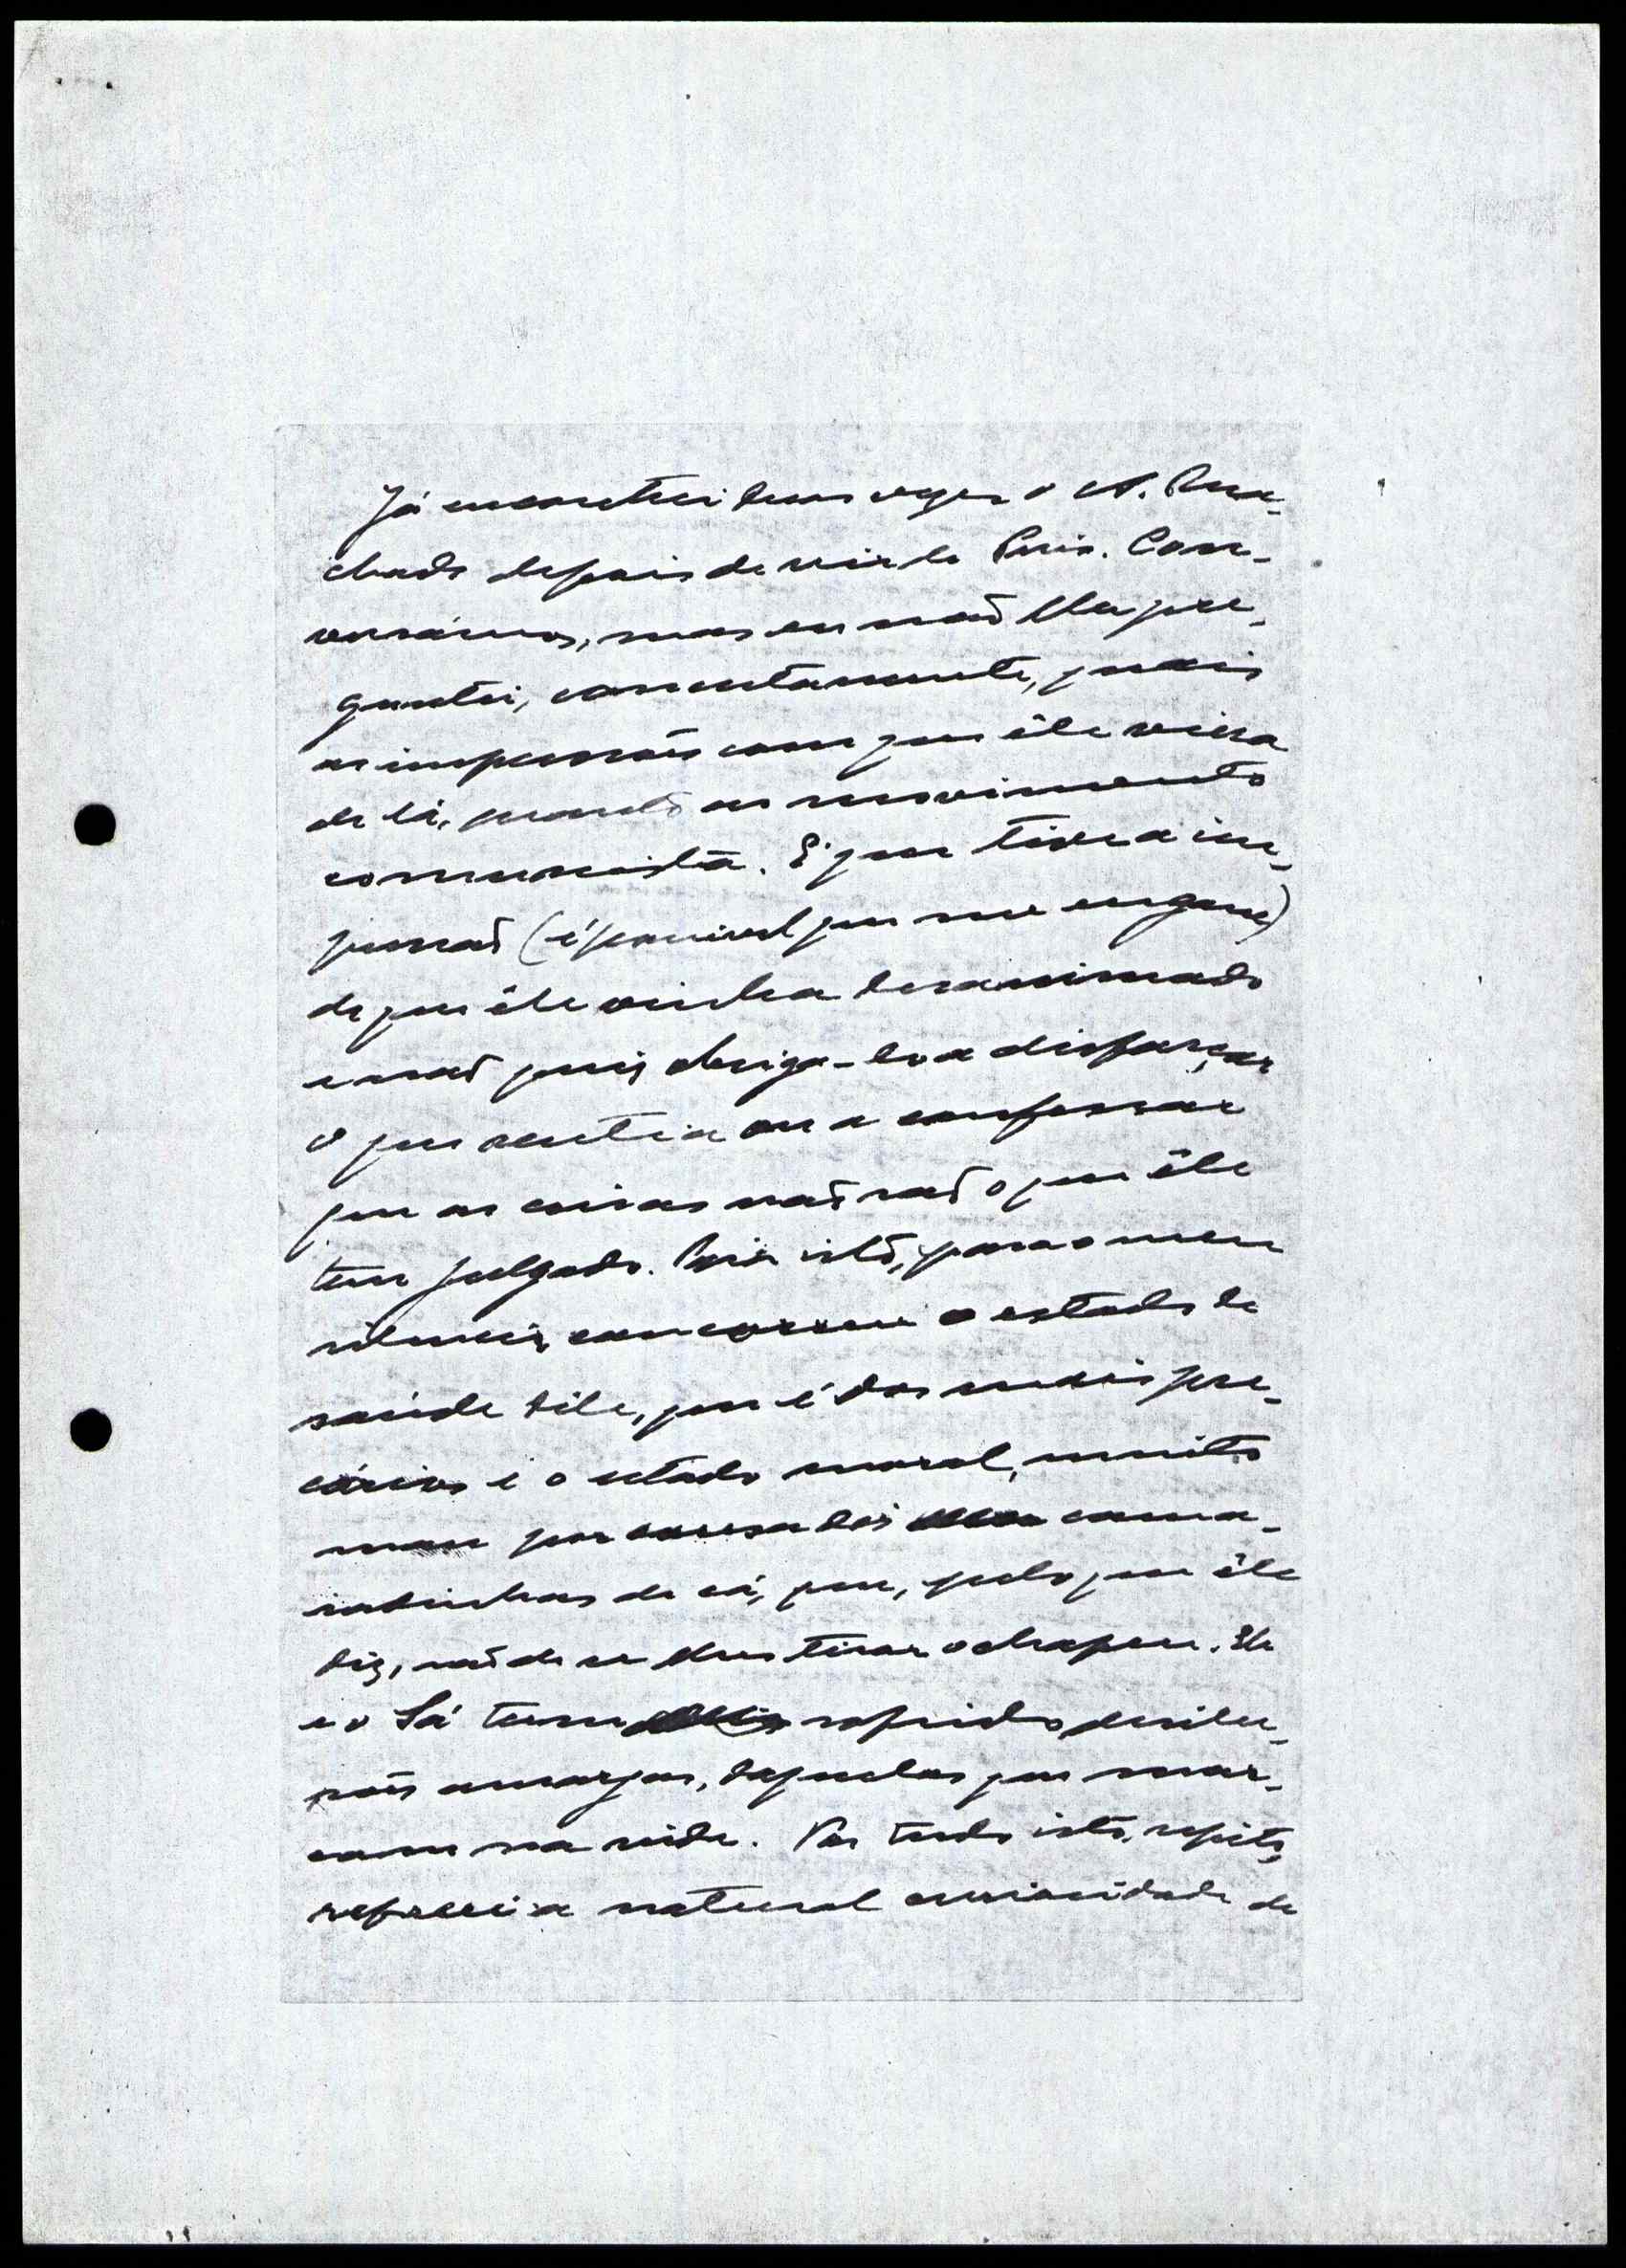 Já encontrei duas vezes o A. Ma-
chado depois de vir de Paris. Con-
versámos, mas eu não lhe per-
guntei, concretamente, quais
as impressões com que êle viera
de lá, quanto ao movimento
comunista. É que tive a im-
pressão (é possivel que me engane)
de que êle vinha desanimado
e não quis obriga-lo a disfarçar
o que sentia ou a confessar
que as coisas não são o que êle
tem julgado. Para isto, para o meu
silencio, concorreu o estado de
saúde dêle, que é dos mais pre-
cários e o estado moral, muito
mau por causa dos cama-
radinhas de cá, que, pelo que êle
diz, são de se lhes tirar o chapeu. Ele
e o Sá tem sofrido desilu-
sões amargas, daquelas que mar-
cam na vida. Por tudo isto, repito,
refreei a natural curiosidade de